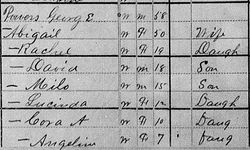 Powers George E. W M 58
— Abigail W F 50 Wife
— Rachel W F 19 Daugh
— David W M 18 Son
— Milo W M 15 Son
— Lucinda W F 12 Daugh
— Cora A W F 10 Daug
— Angeline W F 7 Daug